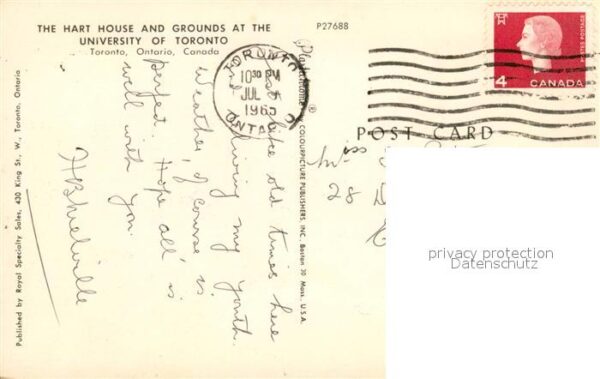 THE HART HOUSE AND GROUNDS AT THE
UNIVERSITY OF TORONTO
Toronto, Ontario, Canada
P27688
TORONTO
10 30 PM
JUL
1965
ONTARIO
4
CANADA
POSTES POSTAGE
POST CARD
Miss
28
privacy protection
Datenschutz
like old times here
living my youth.
Weather, of course is
perfect. Hope all is
well with you.
Plastichrome ® COLOURPICTURE PUBLISHERS, INC. Boston 30 Mass. U.S.A.
Published by Royal Specialty Sales, 430 King St., W., Toronto, Ontario